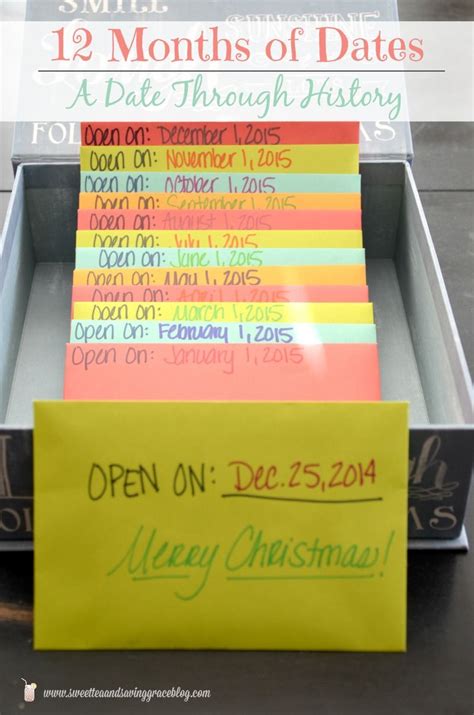 SMILE
12 Months of Dates
A Date Through History
FOL
AS
Open On: December 1, 2015
Open On: November 1, 2015
Open On: October 1, 2015
Open On: September 1, 2015
Open On: August 1, 2015
Open On: July 1, 2015
Open On: June 1, 2015
Open On: May 1, 2015
Open On: April 1, 2015
Open On: March 1, 2015
Open On: February 1, 2015
Open On: January 1, 2015
OPEN ON: Dec. 25, 2014
Merry Christmas!
FOL
AS
www.sweetteaandsavinggraceblog.com